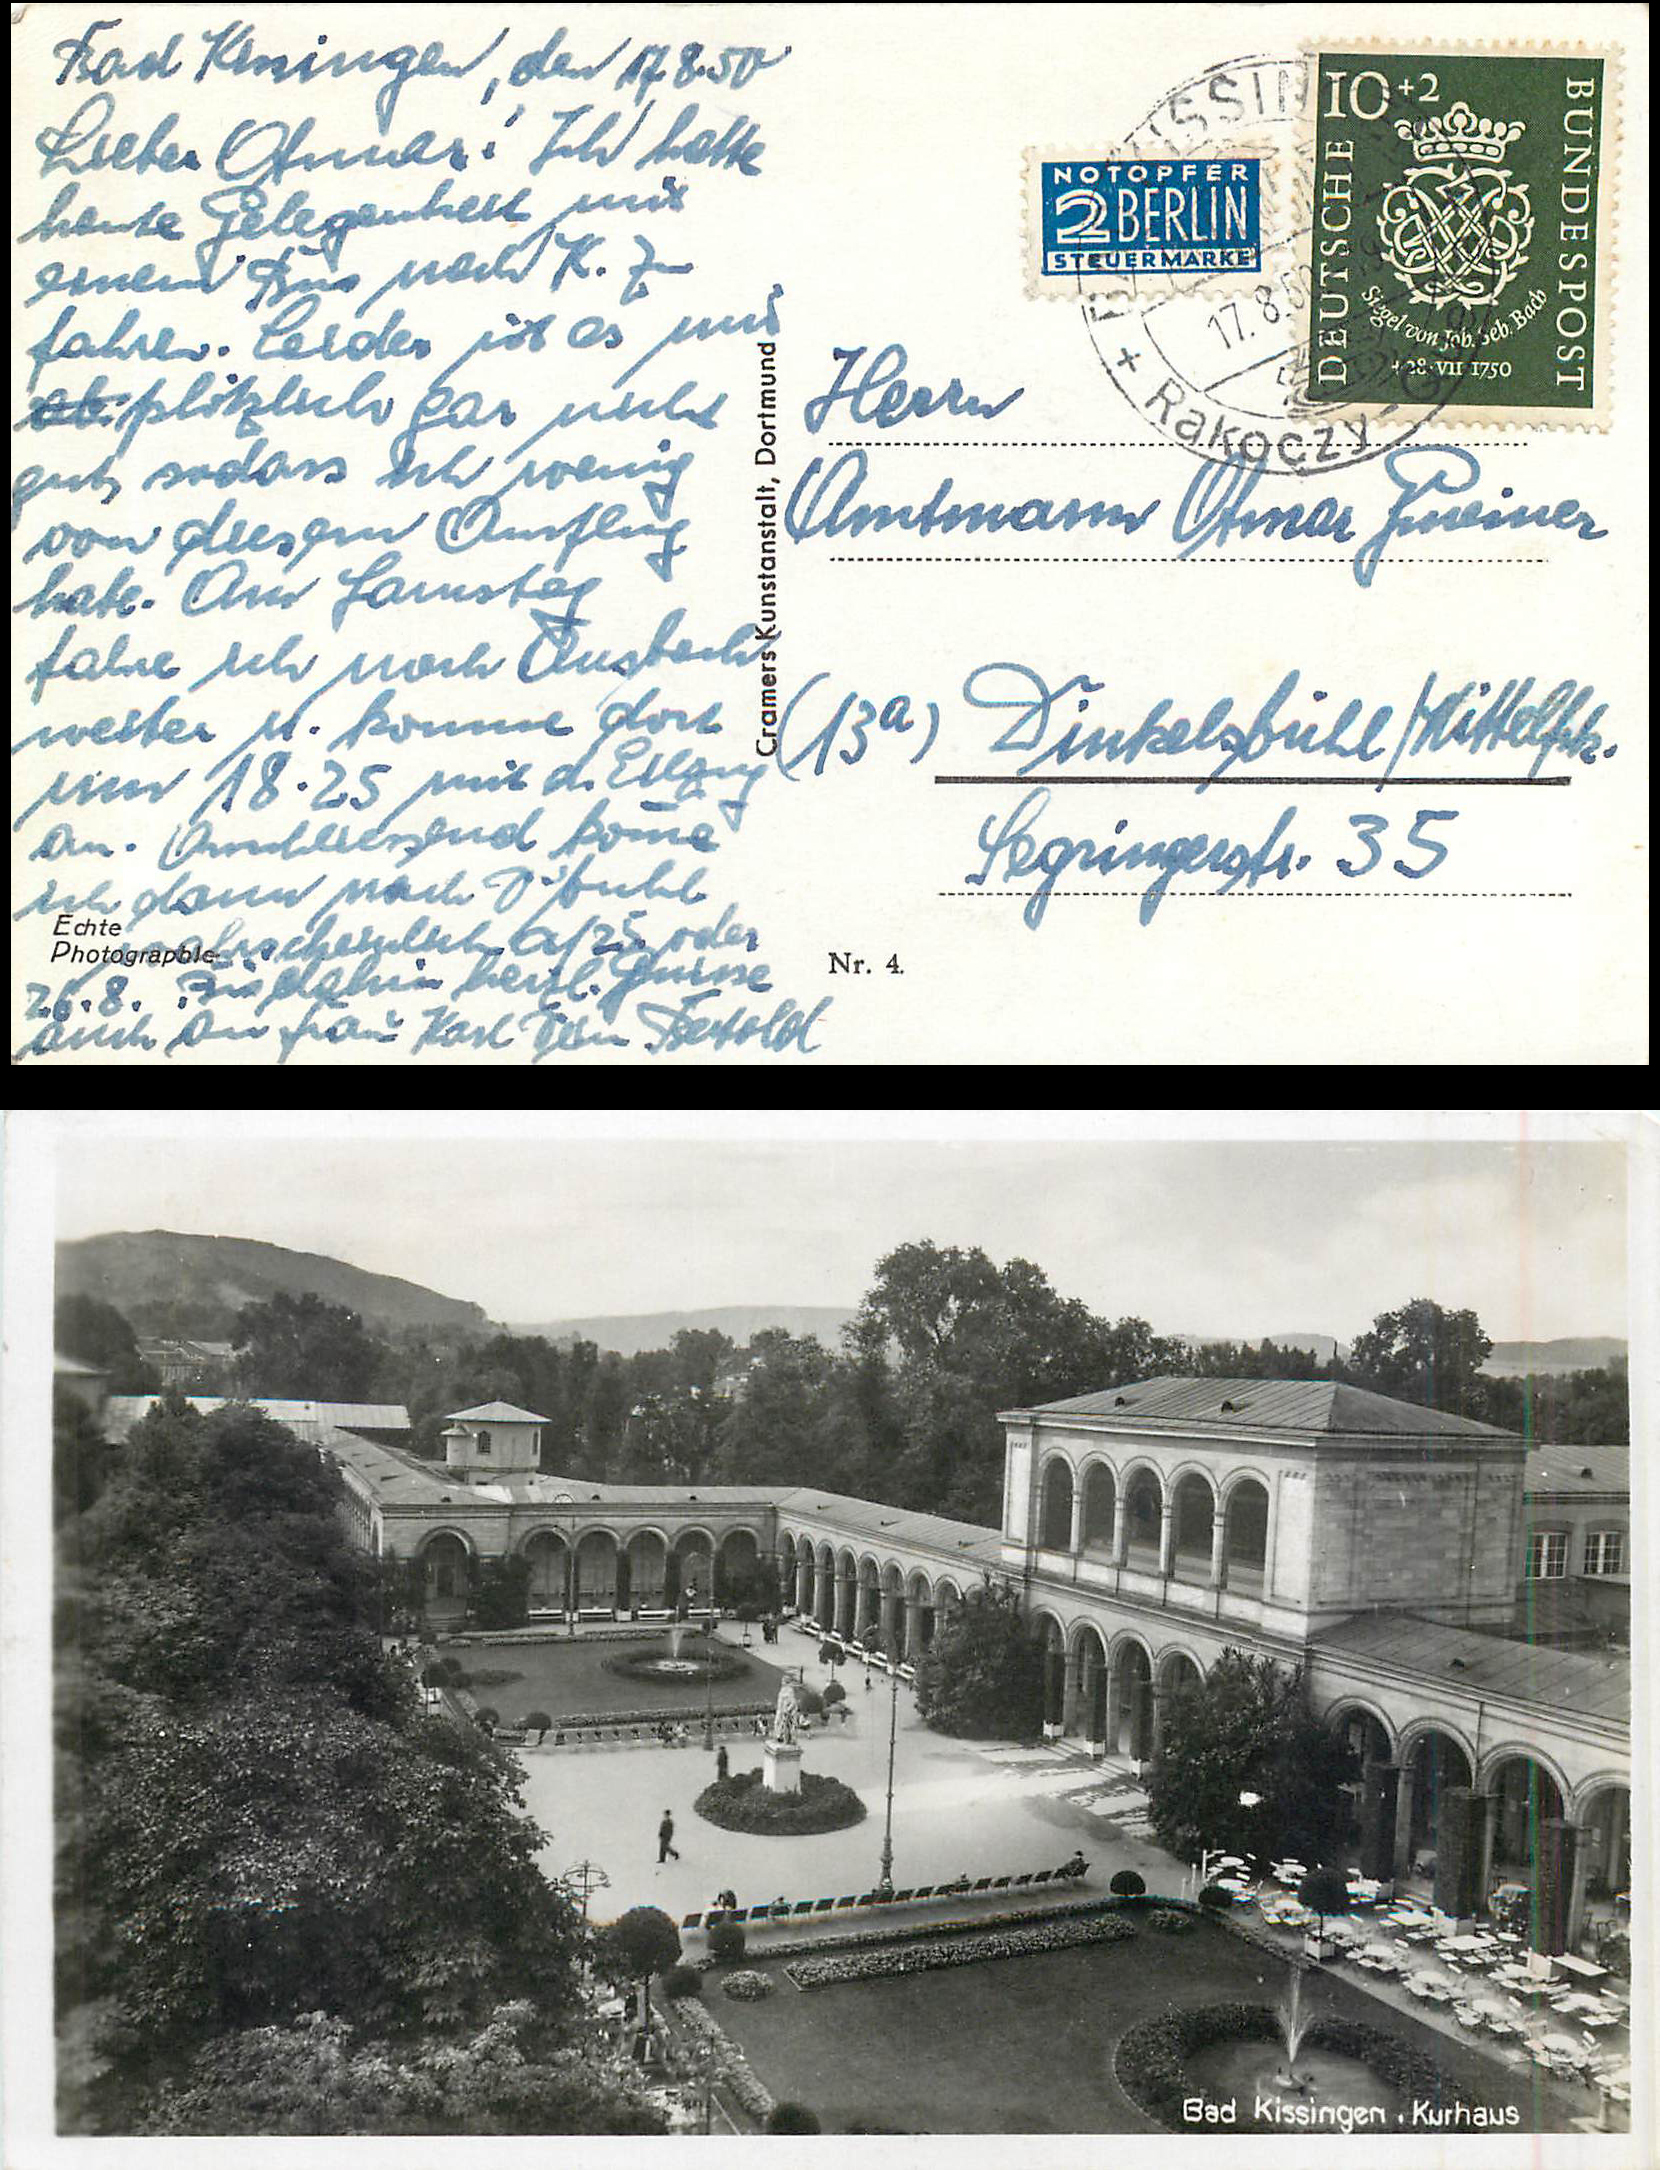 Bad Kissingen, den 17.8.50
Lieber Otmar! Ich hatte
heute Gelegenheit mit
einem Bus nach K. zu
fahren. Leider ist es mir
plötzlich gar nicht
gut, sodass ich wenig
von diesem Ausflug
habe. Am Samstag
fahre ich nach Ansbach
weiter u. komme dort
um 18.25 mit d. Eilzug
an. Anschliessend kom̄e
ich dann nach D'bühl
wahrscheinlich 25. oder
26.8. Bis dahin herzl. Grüsse
auch an Frau Karl Dein Bertold
Echte
Photographie
Cramers Kunstanstalt, Dortmund
NOTOPFER
2 BERLIN
STEUERMARKE
10+2
DEUTSCHE
BUNDESPOST
Siegel von Joh. Seb. Bach
+ 28·VII 1750
17.8.50
+ Rakoczy
Herrn
Amtmann Otmar Gmeiner
(13a) Dinkelsbühl/Mittelfrk.
Segringerstr. 35
Nr. 4.
Bad Kissingen . Kurhaus